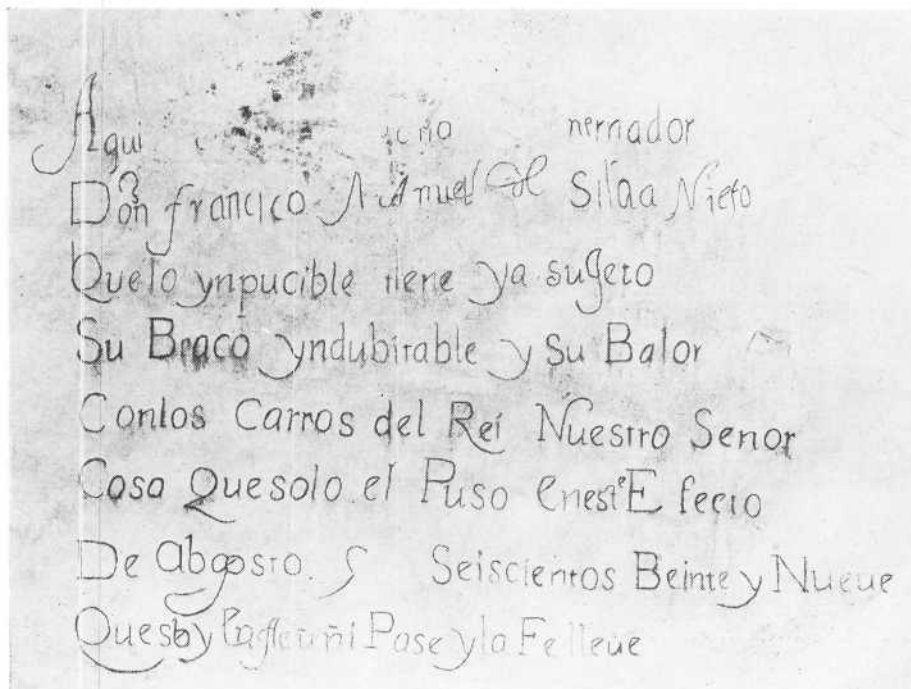 Aqui nernador
Don francico Manuel de Silua Nieto
Quelo ynpucible tiene ya sugeto
Su Braco yndubitable y Su Balor
Conlos Carros del Rei Nuestro Senor
Cosa Quesolo el Puso EnestE fecto
De Abgosto Seiscientos Beinte y Nueue
Quesby Pase yla Fe lleue